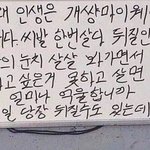 래 인생은 개썅마이웨
다. 씨발 한번살다 뒤질인
의 눈치 살살 봐가면서
고 싶은거 못하고 살면
얼마나 억울합니까
일 당장 뒤질수도 있는데